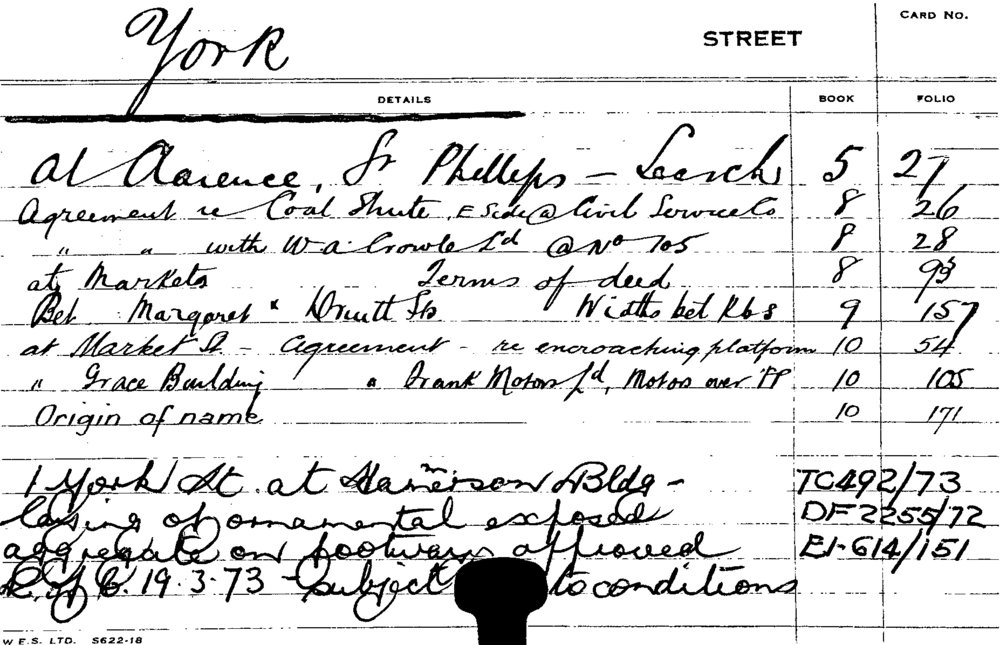 CARD NO.
York STREET
DETAILS BOOK FOLIO
at Clarence, St Phillips - Search 5 27
Agreement re Coal Shute, E Side @ Civil Service Co 8 26
" " with W. a. Crowle Ld @ No 105 8 28
at Markets Terms of deed 8 93
Bet Margaret & Druitt Sts Widths bet Kbs 9 157
at Market St - Agreement - re encroaching platform 10 54
" Grace Building " Frank Motors Ld, Motors over FP 10 105
Origin of name 10 171
1 York St. at Bldg - TC492/73
laying of ornamental exposed DF2255/72
aggregate on footways approved E1-614/151
19.3.73 - Subject to conditions
W.E.S. LTD. S622-18